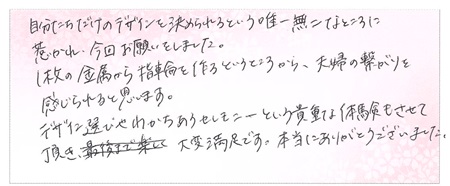 自分たちだけのデザインを決められるという唯一無二なところに
惹かれ、今回お願いをしました。
1枚の金属から指輪を作るというところから、夫婦の繋がりを
感じられると思います。
デザイン選びやわかちあうセレモニーという貴重な体験もさせて
頂き、最後まで楽しく 大変満足です。本当にありがとうございました。